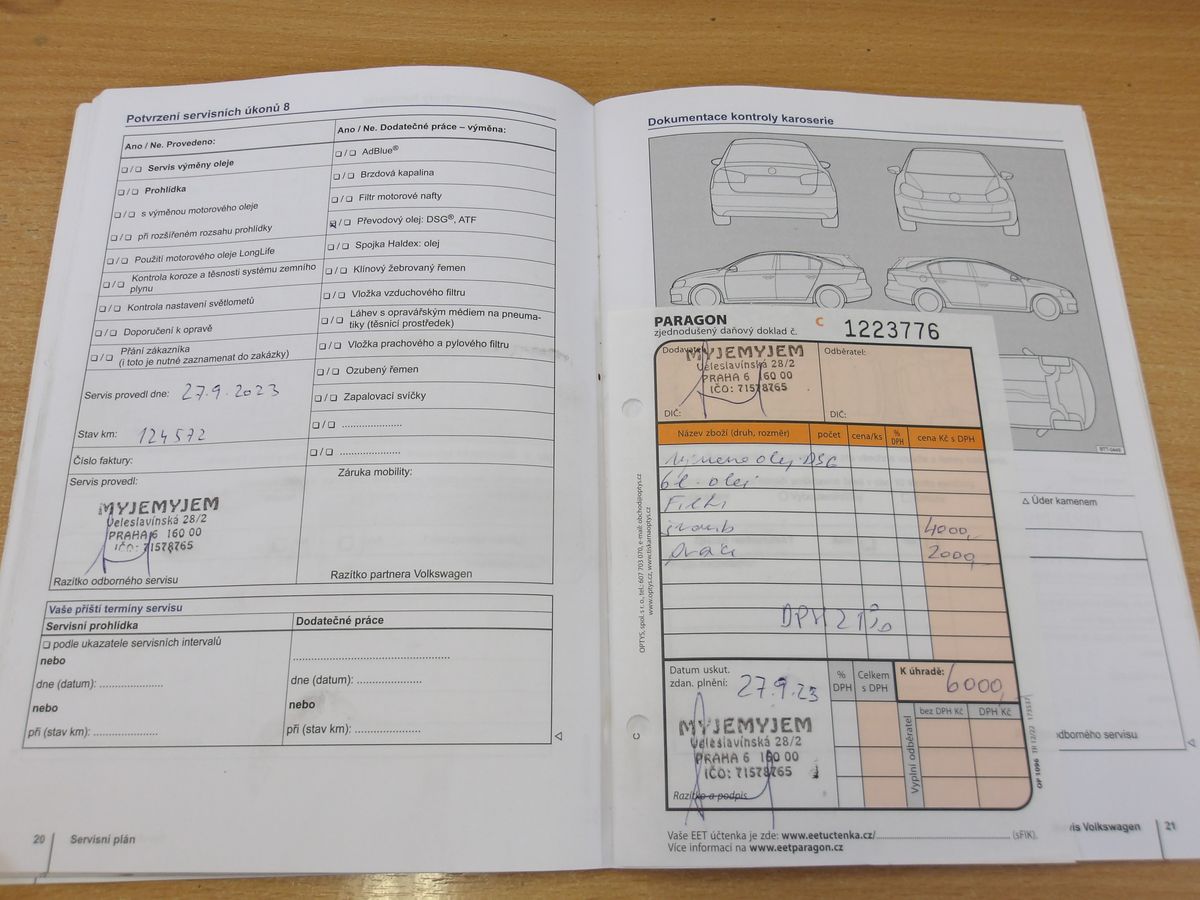 Potvrzení servisních úkonů 8
Ano / Ne. Provedeno:
❏ / ❏ Servis výměny oleje
❏ / ❏ Prohlídka
❏ / ❏ s výměnou motorového oleje
❏ / ❏ při rozšířeném rozsahu prohlídky
❏ / ❏ Použití motorového oleje LongLife
❏ / ❏ Kontrola koroze a těsnosti systému zemního
plynu
❏ / ❏ Kontrola nastavení světlometů
❏ / ❏ Doporučení k opravě
❏ / ❏ Přání zákazníka
(i toto je nutné zaznamenat do zakázky)
Servis provedl dne: 27.9.2023
Stav km: 124572
Číslo faktury:
Servis provedl:
MYJEMYJEM
Veleslavínská 28/2
PRAHA 6 160 00
IČO: 71578765
Razítko odborného servisu
Ano / Ne. Dodatečné práce – výměna:
❏ / ❏ AdBlue®
❏ / ❏ Brzdová kapalina
❏ / ❏ Filtr motorové nafty
☒ / ❏ Převodový olej: DSG®, ATF
❏ / ❏ Spojka Haldex: olej
❏ / ❏ Klínový žebrovaný řemen
❏ / ❏ Vložka vzduchového filtru
❏ / ❏ Láhev s opravářským médiem na pneuma-
tiky (těsnicí prostředek)
❏ / ❏ Vložka prachového a pylového filtru
❏ / ❏ Ozubený řemen
❏ / ❏ Zapalovací svíčky
❏ / ❏ .....................
❏ / ❏ .....................
Záruka mobility:
Razítko partnera Volkswagen
Vaše příští termíny servisu
Servisní prohlídka
❏ podle ukazatele servisních intervalů
nebo
dne (datum): .....................
nebo
při (stav km): .....................
Dodatečné práce
.....................................................
dne (datum): .....................
nebo
při (stav km): .....................
20 Servisní plán
Dokumentace kontroly karoserie
△ Úder kamenem
odborného servisu
Volkswagen 21
PARAGON
zjednodušený daňový doklad č. C 1223776
Dodavatel:
MYJEMYJEM
Veleslavínská 28/2
PRAHA 6 160 00
IČO: 71578765
DIČ:
Odběratel:
DIČ:
Název zboží (druh, rozměr) počet cena/ks % DPH cena Kč s DPH
olej DSG
6l. olej
Filtr
šroub 4000,-
práce 2000,-
DPH 21%
Datum uskut.
zdan. plnění: 27.9.23
% DPH
Celkem s DPH
K úhradě: 6000,-
bez DPH Kč DPH Kč
Vyplní odběratel
MYJEMYJEM
Veleslavínská 28/2
PRAHA 6 160 00
IČO: 71578765
Razítko a podpis
OPTYS, spol. s r. o., tel.: 607 703 070, e-mail: obchod@optys.cz
www.optys.cz, www.tiskarnaoptys.cz
OP 1096
Vaše EET účtenka je zde: www.eetuctenka.cz/.............................. (sFIK).
Více informací na www.eetparagon.cz